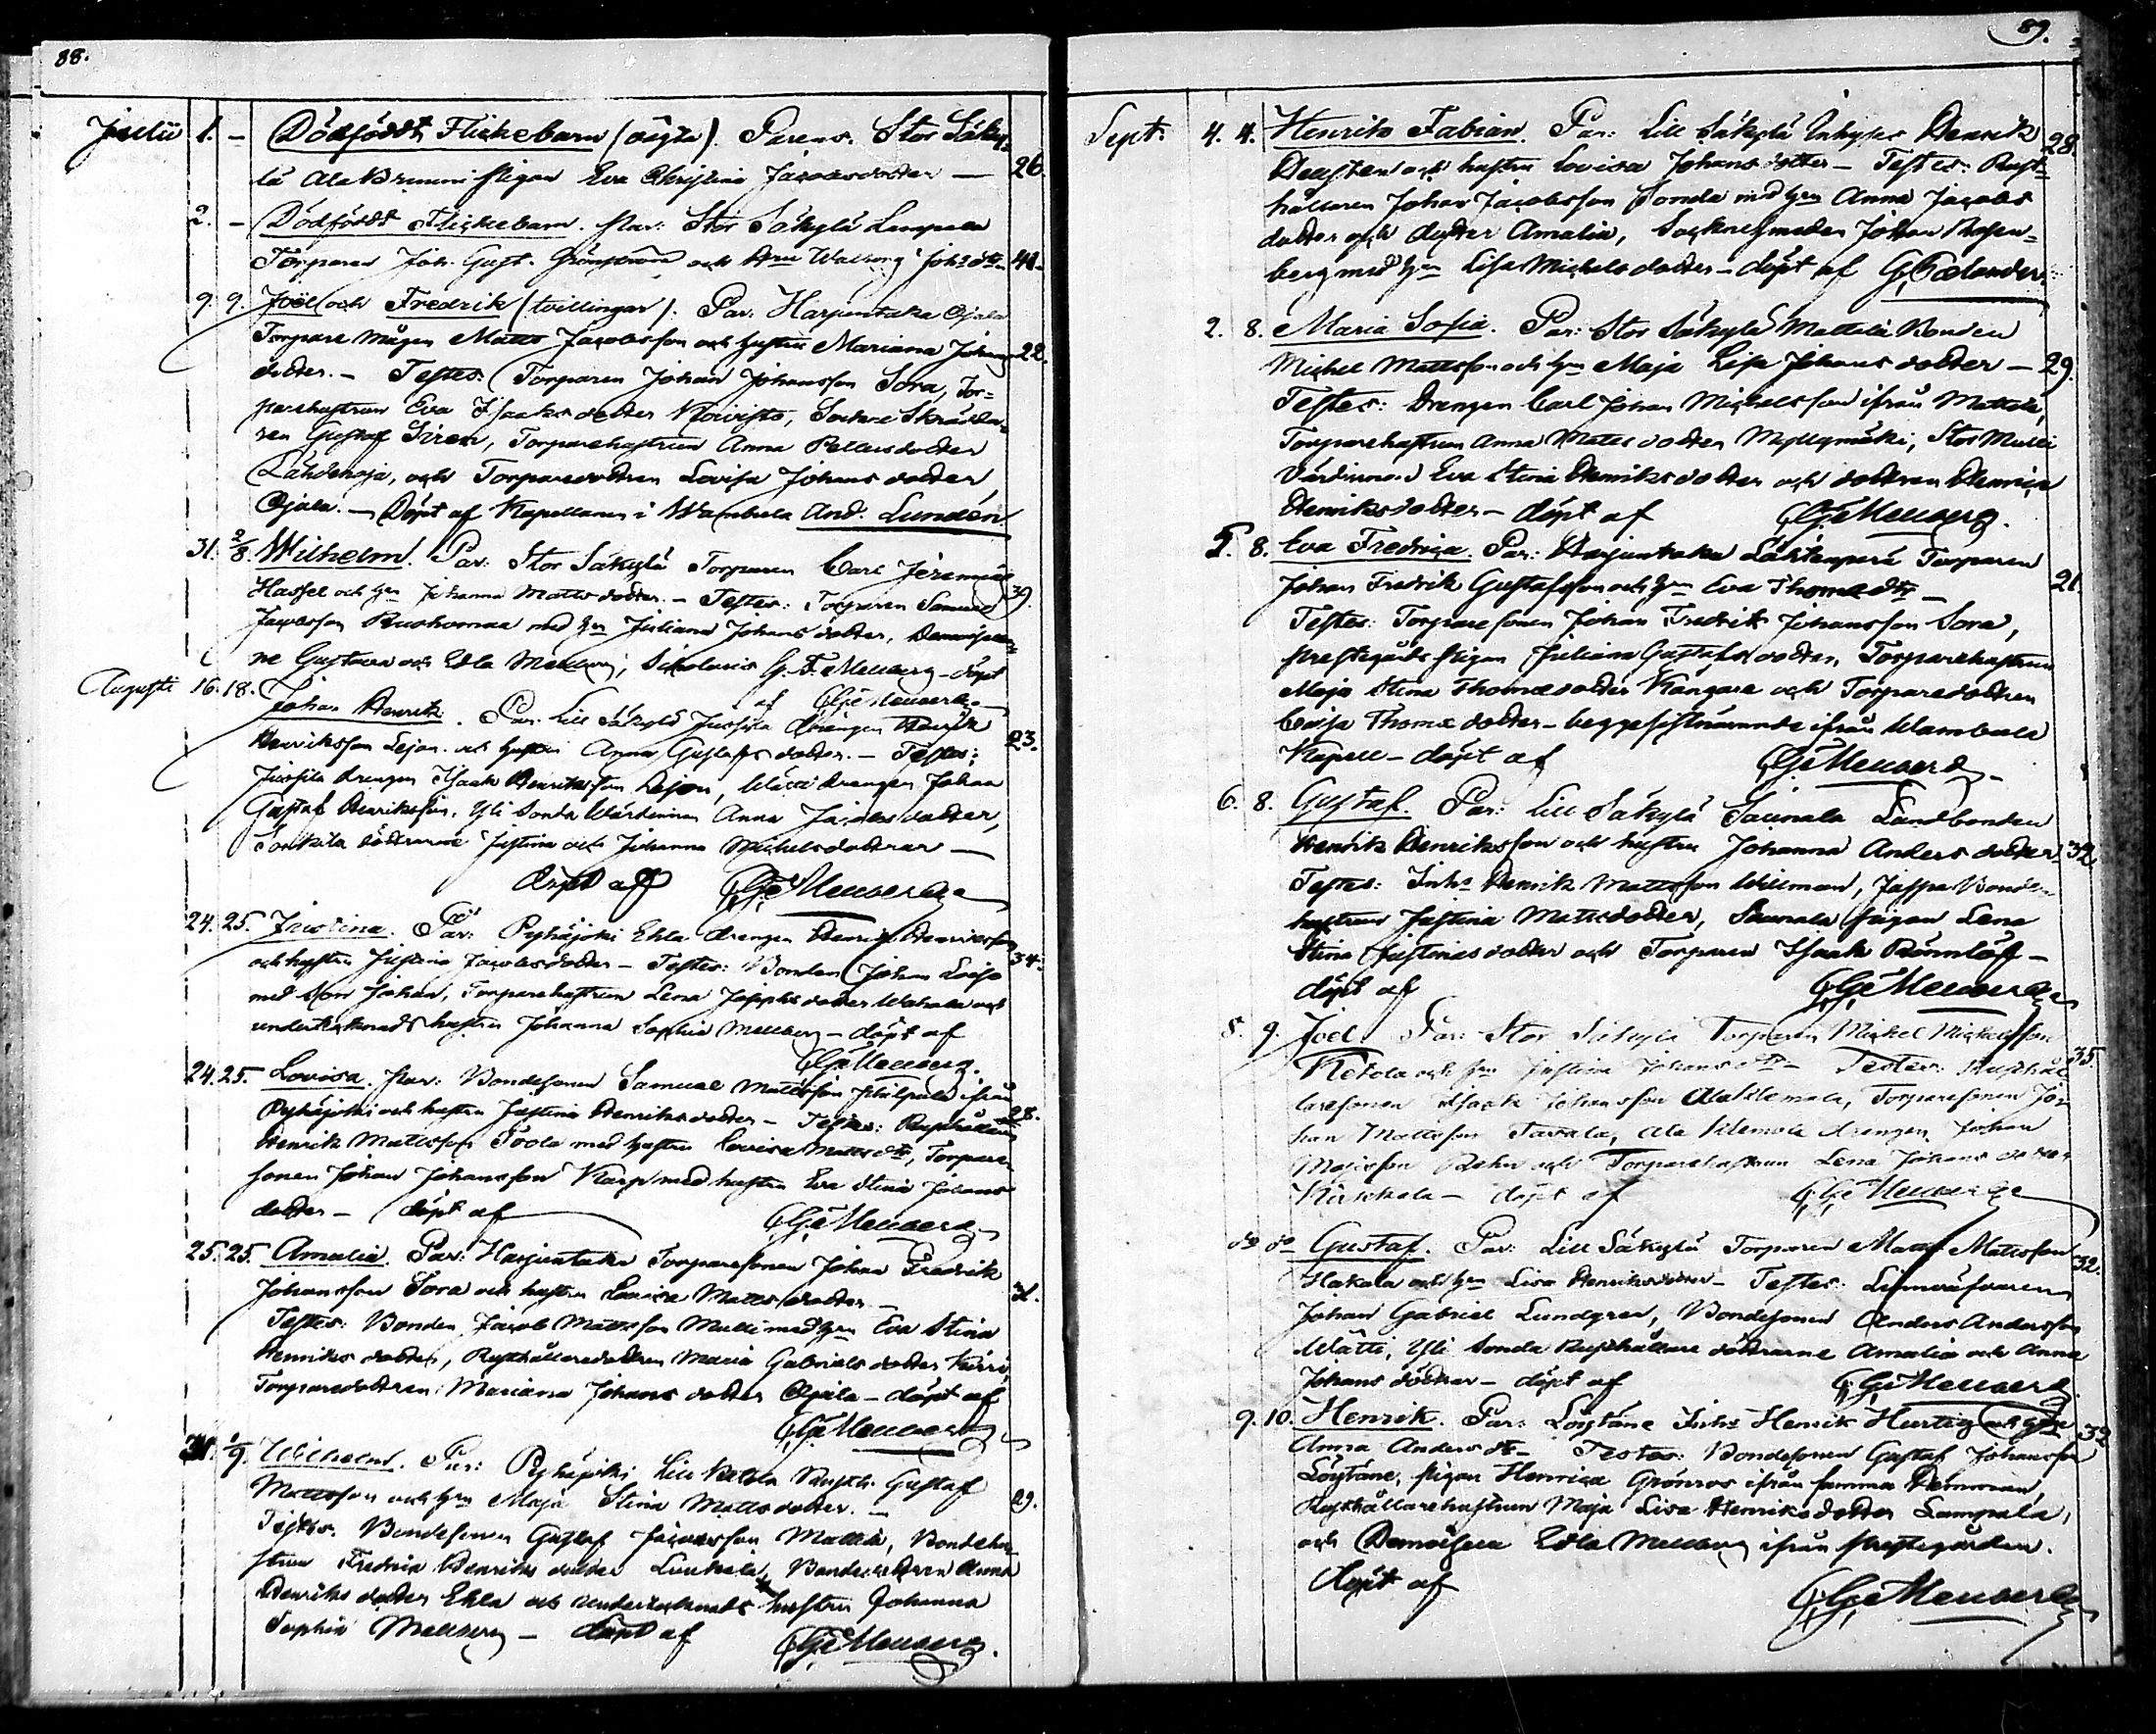 88.
Julii 1. – Dödfödt Flickebarn (oägta). Parens. Stor Säky=
lä Ala Brunni Pigan Eva Christina Jacobsdotter — 26
2. – Dödfödt Flickebarn. Par: Stor Säkylä Lampala
Torparen Joh. Gust. Grönstrand och Hru Walborg Johsdtr 41.
9. 9. Joel och Fredrik (tvillingar). Par: Harjuntaka Ojala
Torpare mågen Matts Jacobsson och hustru Mariana Johans 22.
dotter. – Testes: Torparen Johan Johansson Sora, Tor=
parehustrun Eva Isaaksdotter Koivisto, Sockne Skrädda=
ren Gustaf Siren, Torparehustrun Anna Pettersdotter
Lähdenoja, och Torparedottren Lovisa Johansdotter
Ojala. — Döpt af Kapellanen i Wambula And. Lundén.
31. 2/8. Wilhelm. Par: Stor Säkylä Torparen Carl Jeremias
Hassel och hru Johanna Mattsdotter. – Testes: Torparen Samuel 39.
Jacobsson Ruohomaa med hru Juliana Johansdotter,
ne Gustava och Edla Mellberg, Scholaris G. F. Mellberg – döpt
af CGE Mellberg
Augusti 16. 18. Johan Henrik. Par: Lill Säkylä Jussila drängen Henrik
Henriksson Lejon och hustru Anna Gustafsdotter. – Testes: 23.
Jussila drengen Isaak Henriksson Lejon, Mätti drengen Johan
Gustaf Henriksson, Yli Sonda Wärdinnan Anna Jacobsdotter,
döttrarne Justina och Johanna Michelsdöttrar —
döpt af CGE Mellberg
24. 25. Justina. Par: Pyhäjoki Ekla drengen Henrik Henriksson
och hustru Justina Jacobsdotter – Testes: Bonden Johan 34.
med son Johan, Torparehustrun Lena Josephsdotter och
undertecknads hustru Johanna Sophia Mellberg – döpt af
CGE Mellberg.
24. 25. Lovisa. Par: Bondesonen Samuel Mattsson Philpula ifrån
Pyhäjoki och hustru Justina Henriksdotter – Testes: Rusthållaren 28.
Henrik Mattsson Toola med hustru Lovisa Mattsdtr, Torpare
sonen Johan Johansson Karp med hustru Eva Stina Johans
dotter – döpt af CGE Mellberg
25. 25. Amalia. Par: Harjuntaka Torparesonen Johan Fredrik
Johansson Sora och hustru Lovisa Mattsdotter – 31.
Testes: Bonden Jacob Mattsson Mulli med hru Eva Stina
Henriksdotter, Rusthållaredottren Maria Gabrielsdotter Kirri,
Torparedottren Mariana Johansdotter Ojala – döpt af
CGE Mellberg
31. 1/9. Wilhelm. Par: Pyhäjoki Lill Ketola Rusth. Gustaf
Mattsson och hru Maja Stina Mattsdotter. — 29.
Testes: Bondesonen Gustaf Jacobsson Mattila, Bondehu=
strun Fredrica Henriksdotter, Bondedottren Anna
Henriksdotter Ekla och undertecknads hustru Johanna
Sophia Mellberg – döpt af CGE Mellberg.
89.
Sept: 4. 4. Henrik Fabian. Par: Lill Säkylä Inhyses Henrik 28.
och hustru Lovisa Johansdotter – Testes: Rust=
hållaren Johan Jacobsson Sonda med hru Anna Jacobs
dotter och dotter Amalia, Sockne smeden Johan Rosen=
berg med hru Lisa Michelsdotter – döpt af G.
2. 8. Maria Sofia. Par: Stor Säkylä Mattila Bonden
Michel Mattsson och hru Maja Lisa Johansdotter — 29.
Testes: Drengen Carl Johan Michelsson ifrån Mattila,
Torparehustrun Anna Mattsdotter Myllymäki, Stor Mulli
Värdinnan Eva Stina Henriksdotter och dottren Henrica
Henriksdotter – döpt af CGE Mellberg.
5. 8. Eva Fredrica. Par: Harjuntaka Lähtenperä Torparen
Johan Fredrik Gustafsson och hru Eva Thomædtr – 21.
Testes: Torparesonen Johan Fredrik Johansson Sora,
Prestegårds pigan Juliana Gustafsdotter, Torparehustrun
Maja Stina Thomædotter Kangare och Torparedottren
Lovisa Thomædotter – begge sistnämnde ifrån Wambula
Kapell – döpt af CGE Mellberg
6. 8. Gustaf. Par: Lill Säkylä Saunala Landbonden
Henrik Henriksson och hustru Johanna Andersdotter. 32.
Testes: Inhs Henrik Mattsson Willman, Jaspa Bonde=
hustrun Justina Mattsdotter, Saunala pigan Lena
Stina Justinasdotter och Torparen Isaak Rönnlöf –
döpt af CGE Mellberg
8. 9. Joel. Par: Stor Säkylä Torparen Mickel Mickelsson
Ketola och hru Justina Johansdtr – Testes: Rusthål= 35.
laresonen Isaak Johansson Ala Klemola, Torparesonen Jo=
han Mattsson Tavala, Ala Klemola drengen Johan
Mattsson Rehn och Torparehustrun Lena Johansdotter
– döpt af CGE Mellberg
do do Gustaf. Par: Lill Säkylä Torparen Matts Mattsson 32.
Hakala och hru Lisa Henriksdotter – Testes: Linnväfvaren
Johan Gabriel Lundgren, Bondesonen Anders Andersson
Mätti, Yli Sonda Rusthållare döttrarne Amalia och Anna
Johansdöttrar – döpt af CGE Mellberg
9. 10. Henrik. Par: Löytäne Inhs Henrik Hurtig och hru 32
Anna Andersdtr – Testes: Bondesonen Gustaf Johansson
Löytäne, pigan Henrica Grönroos ifrån samma Hemman,
Rusthållarehustrun Maja Lisa Henriksdotter Lampala,
och Demoiselle Edla Mellberg ifrån Prestegården.
döpt af CGE Mellberg